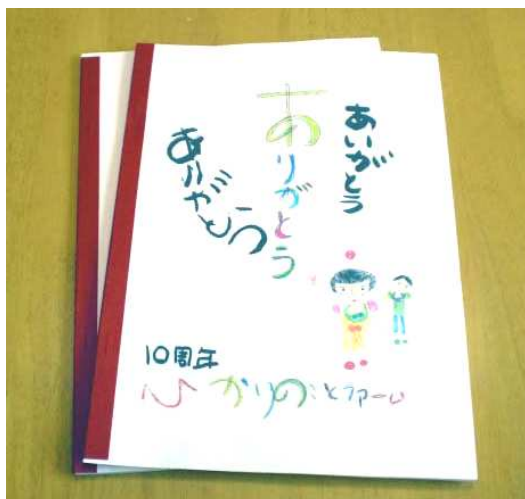 ありがとう
ありがとう
あいがとう
10周年
ひかりのさとファーム